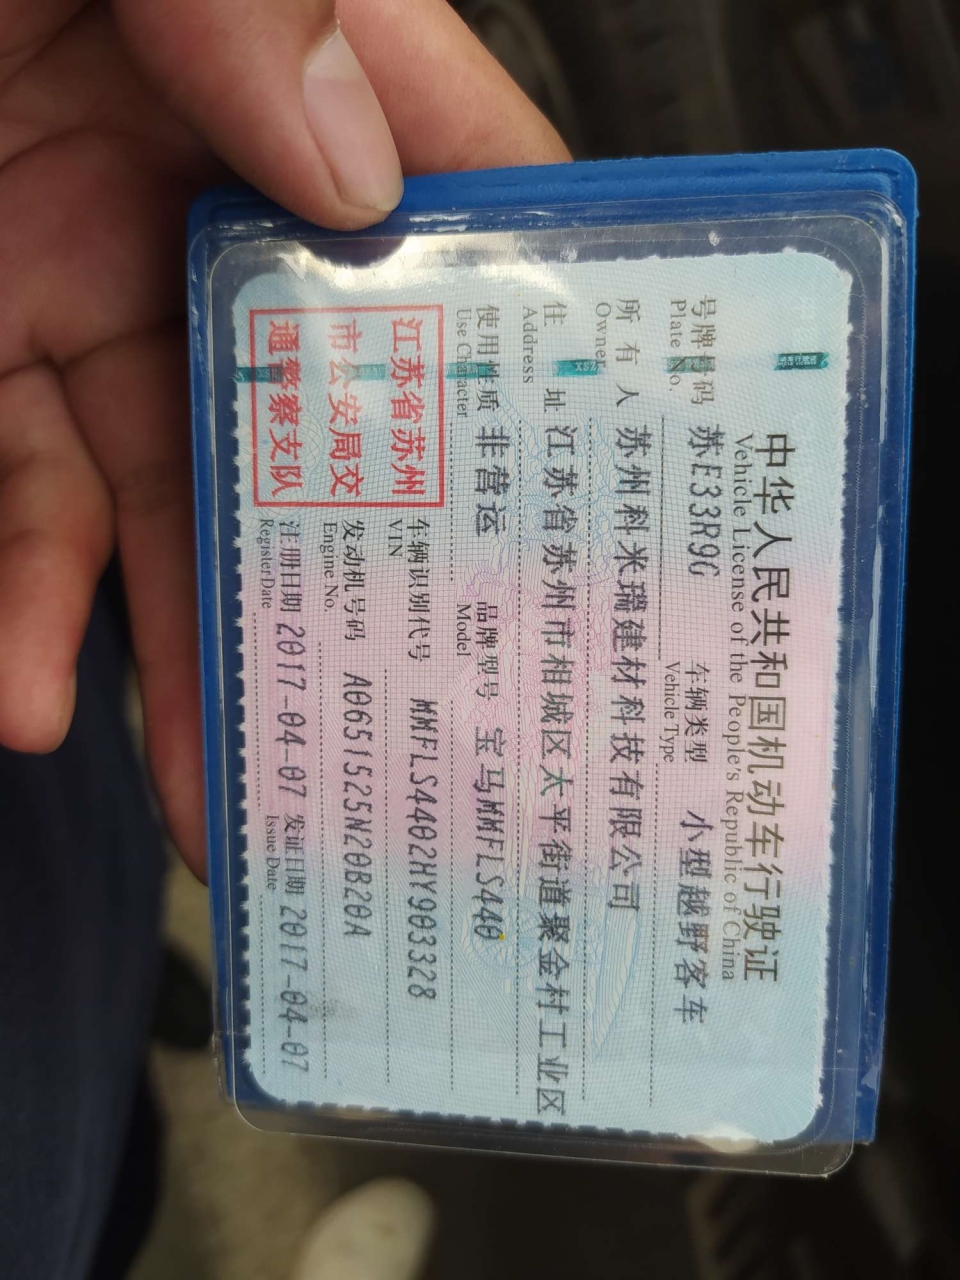 中华人民共和国机动车行驶证
Vehicle License of the People's Republic of China
号牌号码 苏E33R9G 车辆类型 小型越野客车
Plate No. Vehicle Type
所有人 苏州科米瑞建材科技有限公司
Owner
住址 江苏省苏州市相城区太平街道聚金村工业区
Address
使用性质 非营运 品牌型号 宝马MMFLS440
Use Character Model
江苏省苏州
市公安局交
通警察支队
车辆识别代号 MMFLS4402HY903328
VIN
发动机号码 A0651525N20B20A
Engine No.
注册日期 2017-04-07 发证日期 2017-04-07
Register Date Issue Date